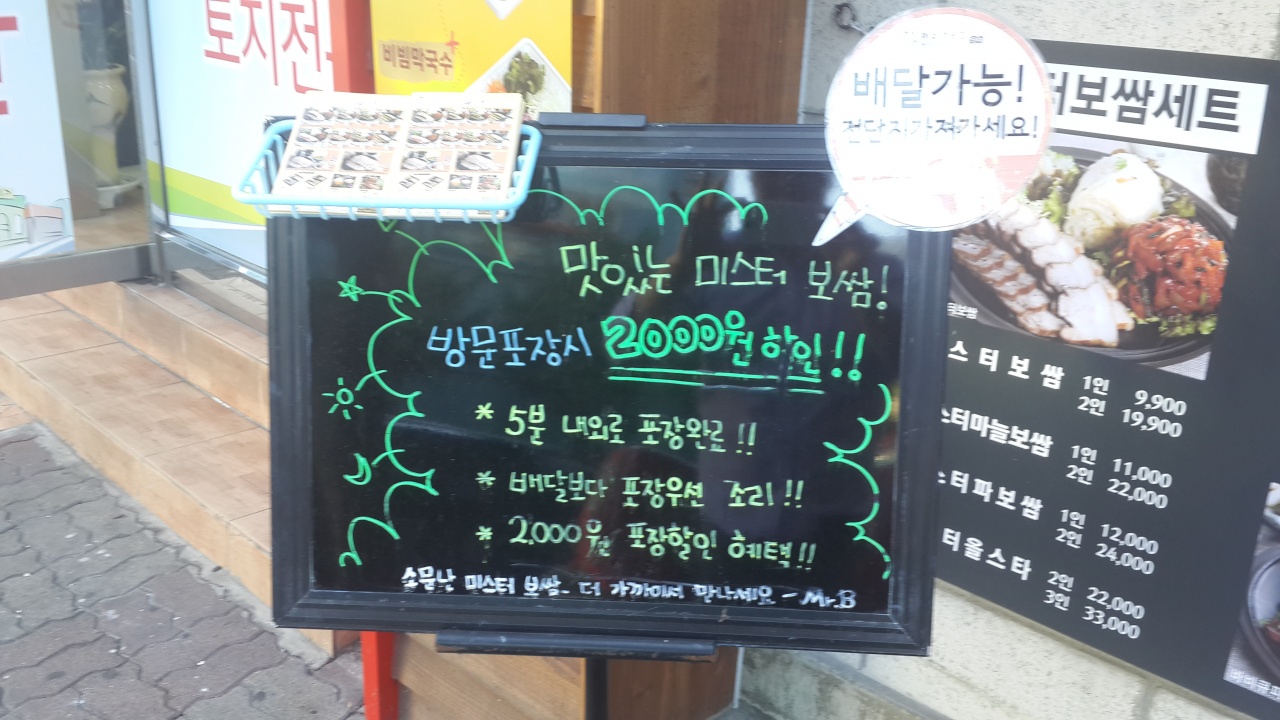 비빔막국수
배달가능!
전단지가져가세요!
터보쌈세트
맛있는 미스터 보쌈!
방문포장시 2000원 할인!!
* 5분 내외로 포장완료!!
* 배달보다 포장우선 조리!!
* 2,000원 포장할인 혜택!!
소문난 미스터 보쌈- 더 가까이서 만나세요 - Mr.B
터보쌈
스터보쌈 1인 9,900
2인 19,900
스터마늘보쌈 1인 11,000
2인 22,000
스터파보쌈 1인 12,000
2인 24,000
터올스타 2인 22,000
3인 33,000